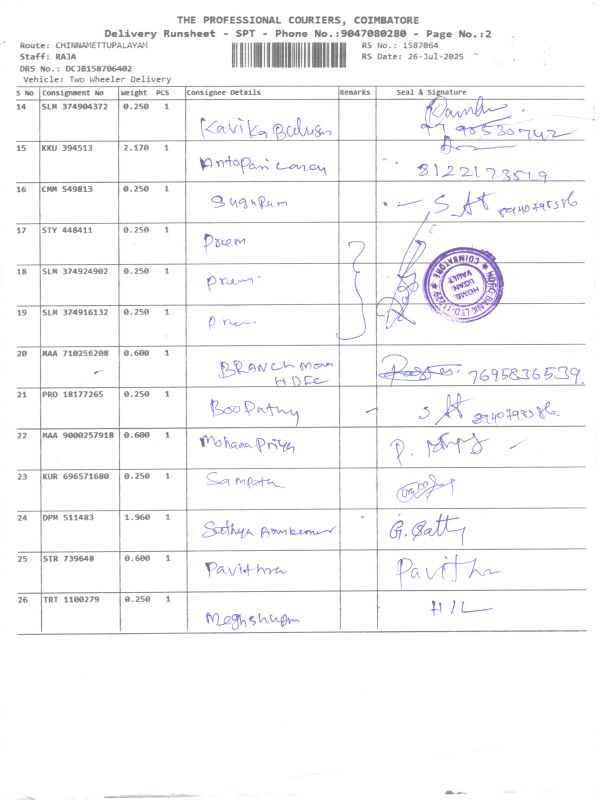 THE PROFESSIONAL COURIERS, COIMBATORE
Delivery Runsheet - SPT - Phone No.:9047080280 - Page No.:2
Route: CHINNAMETTUPALAYAM RS No.: 1587064
Staff: RAJA RS Date: 26-Jul-2025
DRS No.: DCJB158706402
Vehicle: Two Wheeler Delivery
S No Consignment No Weight PCS Consignee Details Remarks Seal & Signature
14 SLM 374904372 0.250 1
Kavika
9790530742
15 KKU 394513 2.170 1
8122173519
16 CMM 549813 0.250 1
Suguram 8940798386
17 STY 448411 0.250 1
Preem
18 SLM 374924902 0.250 1
prem
19 SLM 374916132 0.250 1
prem
HDFC BANK LTD
COIMBATORE
20 MAA 710256208 0.600 1
BRANCH man
HDFC 7695836539.
21 PRO 18177265 0.250 1
Boopathy 8940798386
22 MAA 9000257918 0.600 1
Mohana Priya
23 KUR 696571680 0.250 1
Sampath
24 DPM 511483 1.960 1
Sathya G. Satty
25 STR 739648 0.600 1
Pavithra Pavithr
26 TRT 1100279 0.250 1
H/L